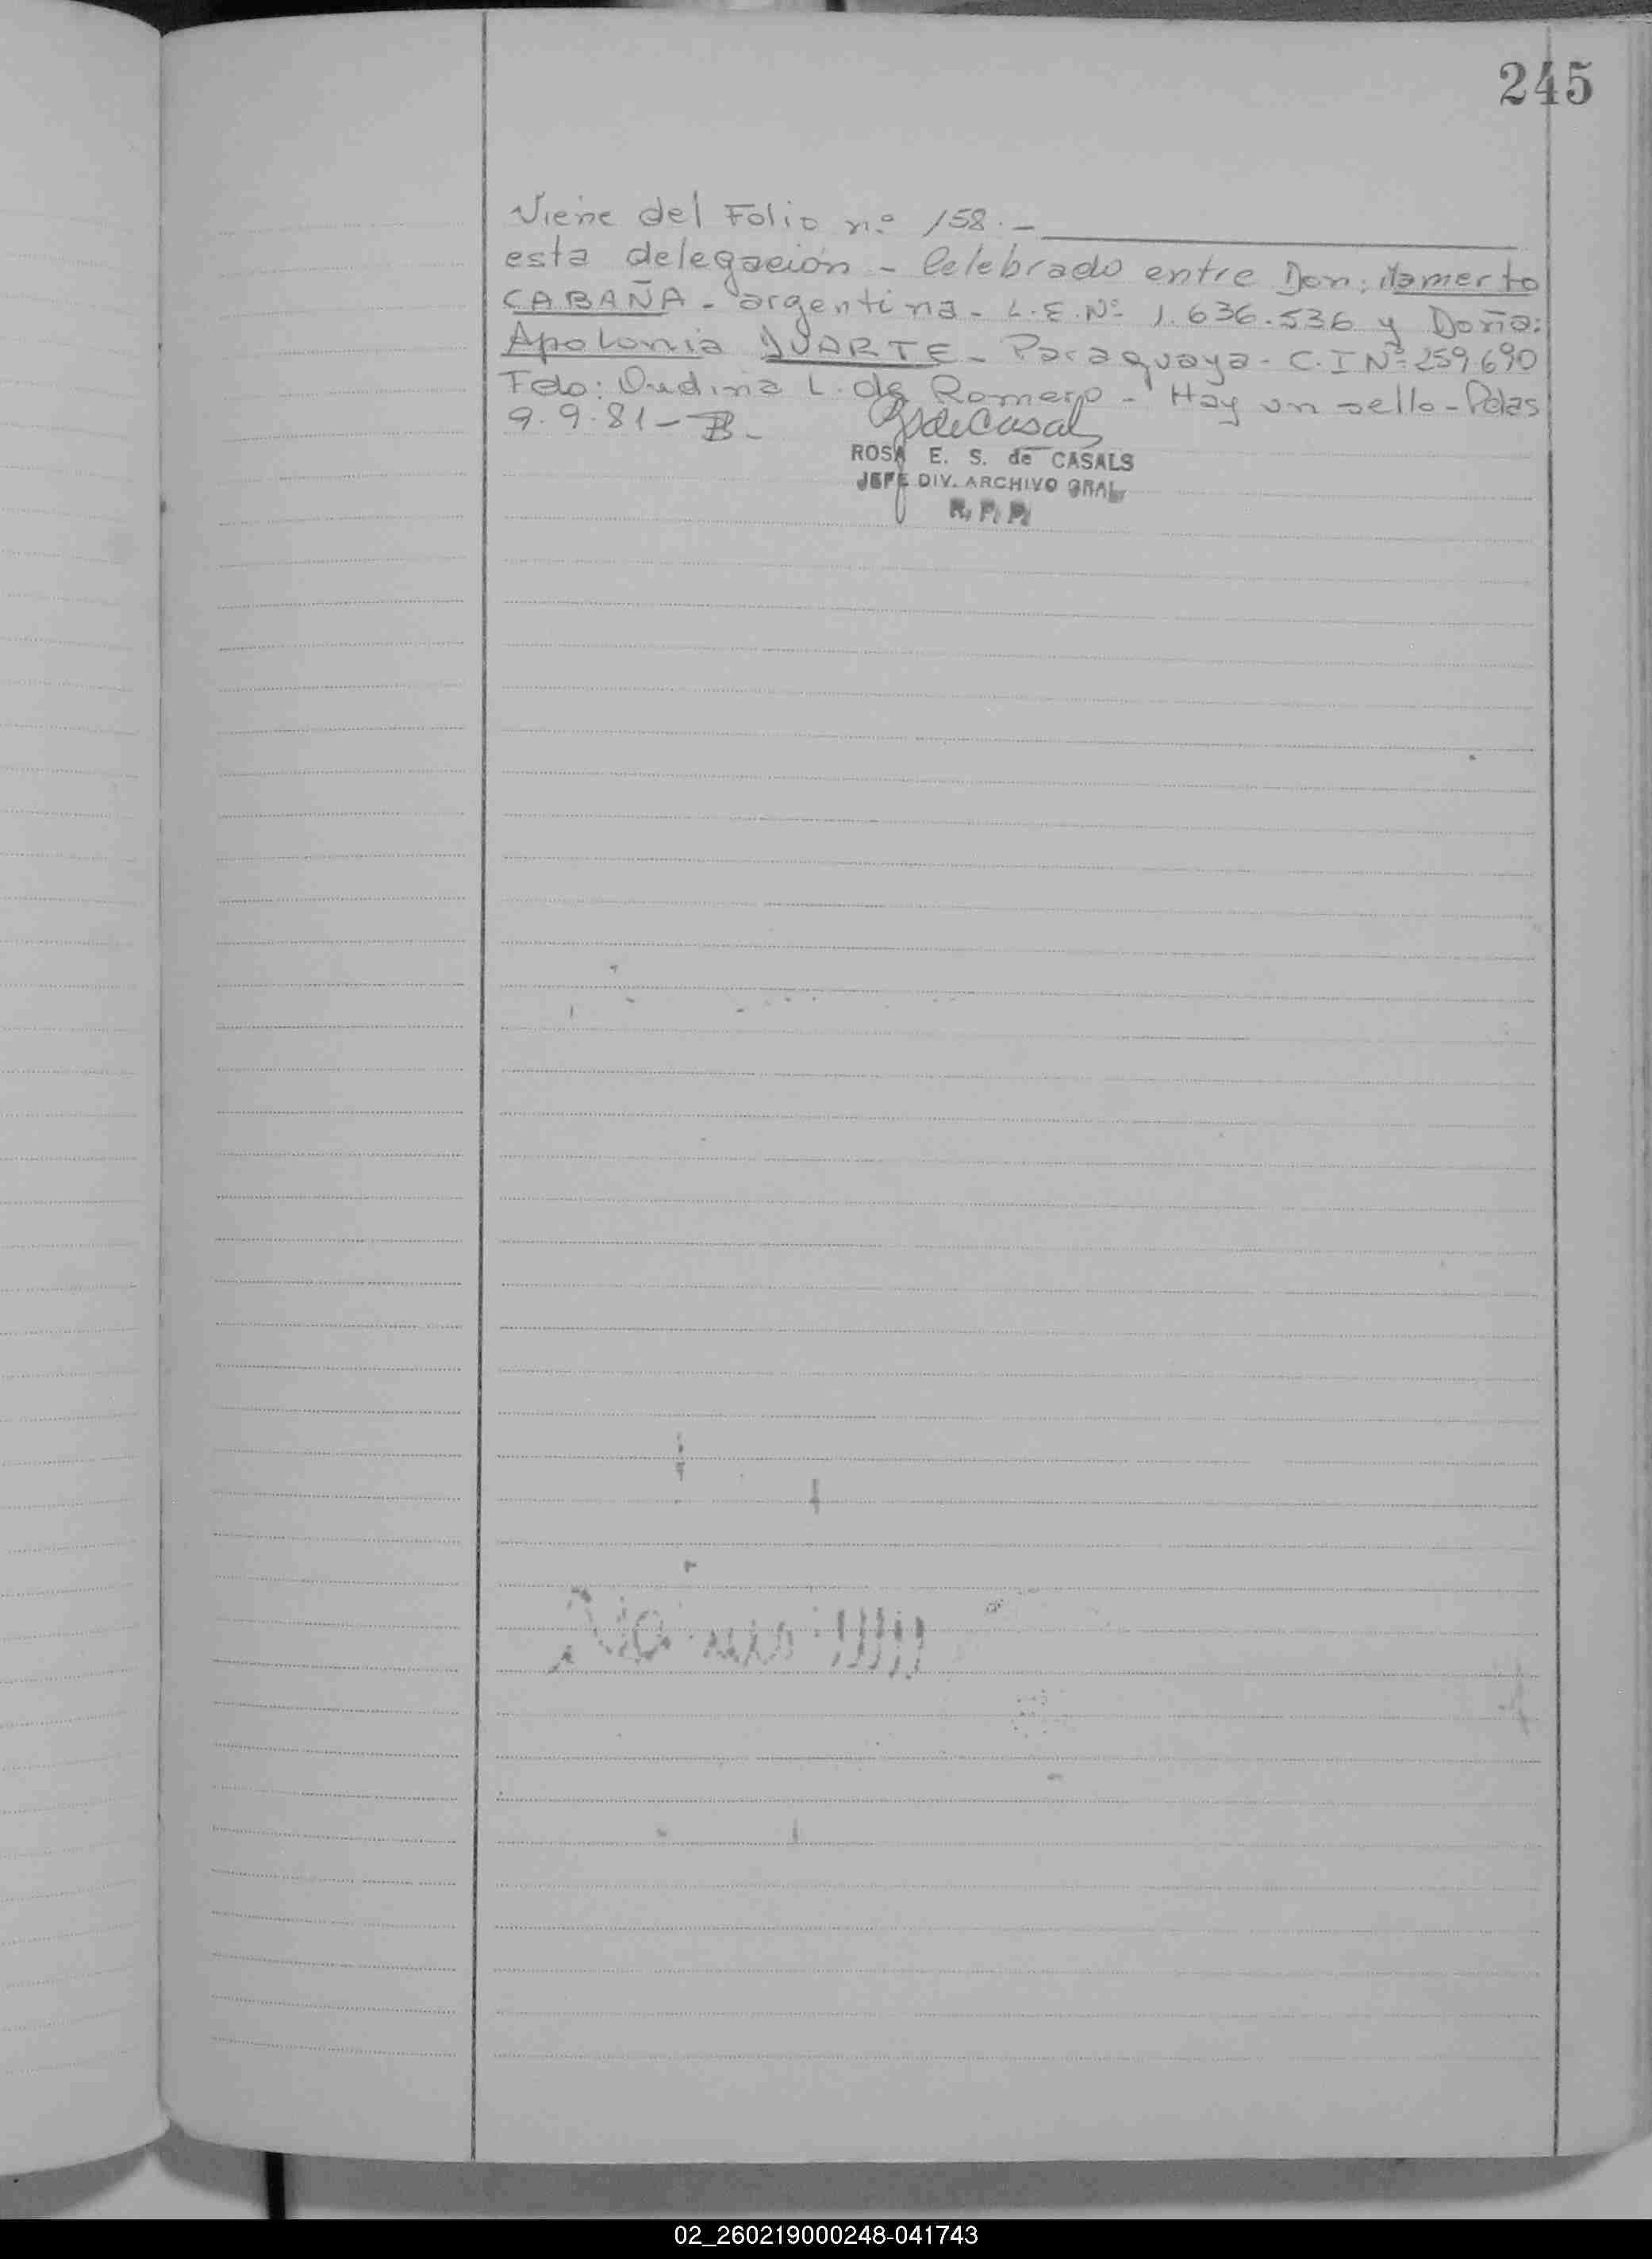 245
Viene del Folio n.º 158.-
esta delegación - Celebrado entre Don: Mamerto
CABAÑA - argentina - L.E.Nº 1.636.536 y Doña:
Apolonia DUARTE - Paraguaya - C.I Nº 259.690
Fdo: L. de Romero - Hay un sello - Pdas
9.9.81 -
ROSA E. S. de CASALS
JEFE DIV. ARCHIVO GRAL
R. P. P.
02_260219000248-041743